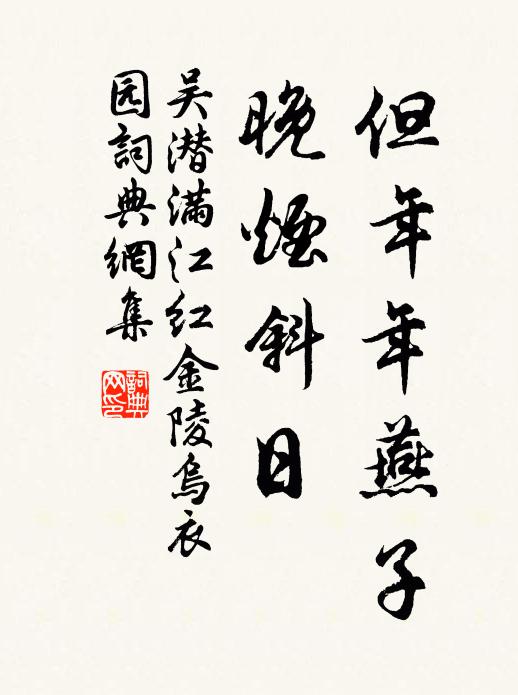 但年年燕子
晚煙斜日
吴潜满江红金陵烏衣
园詞典網集
詞典网印